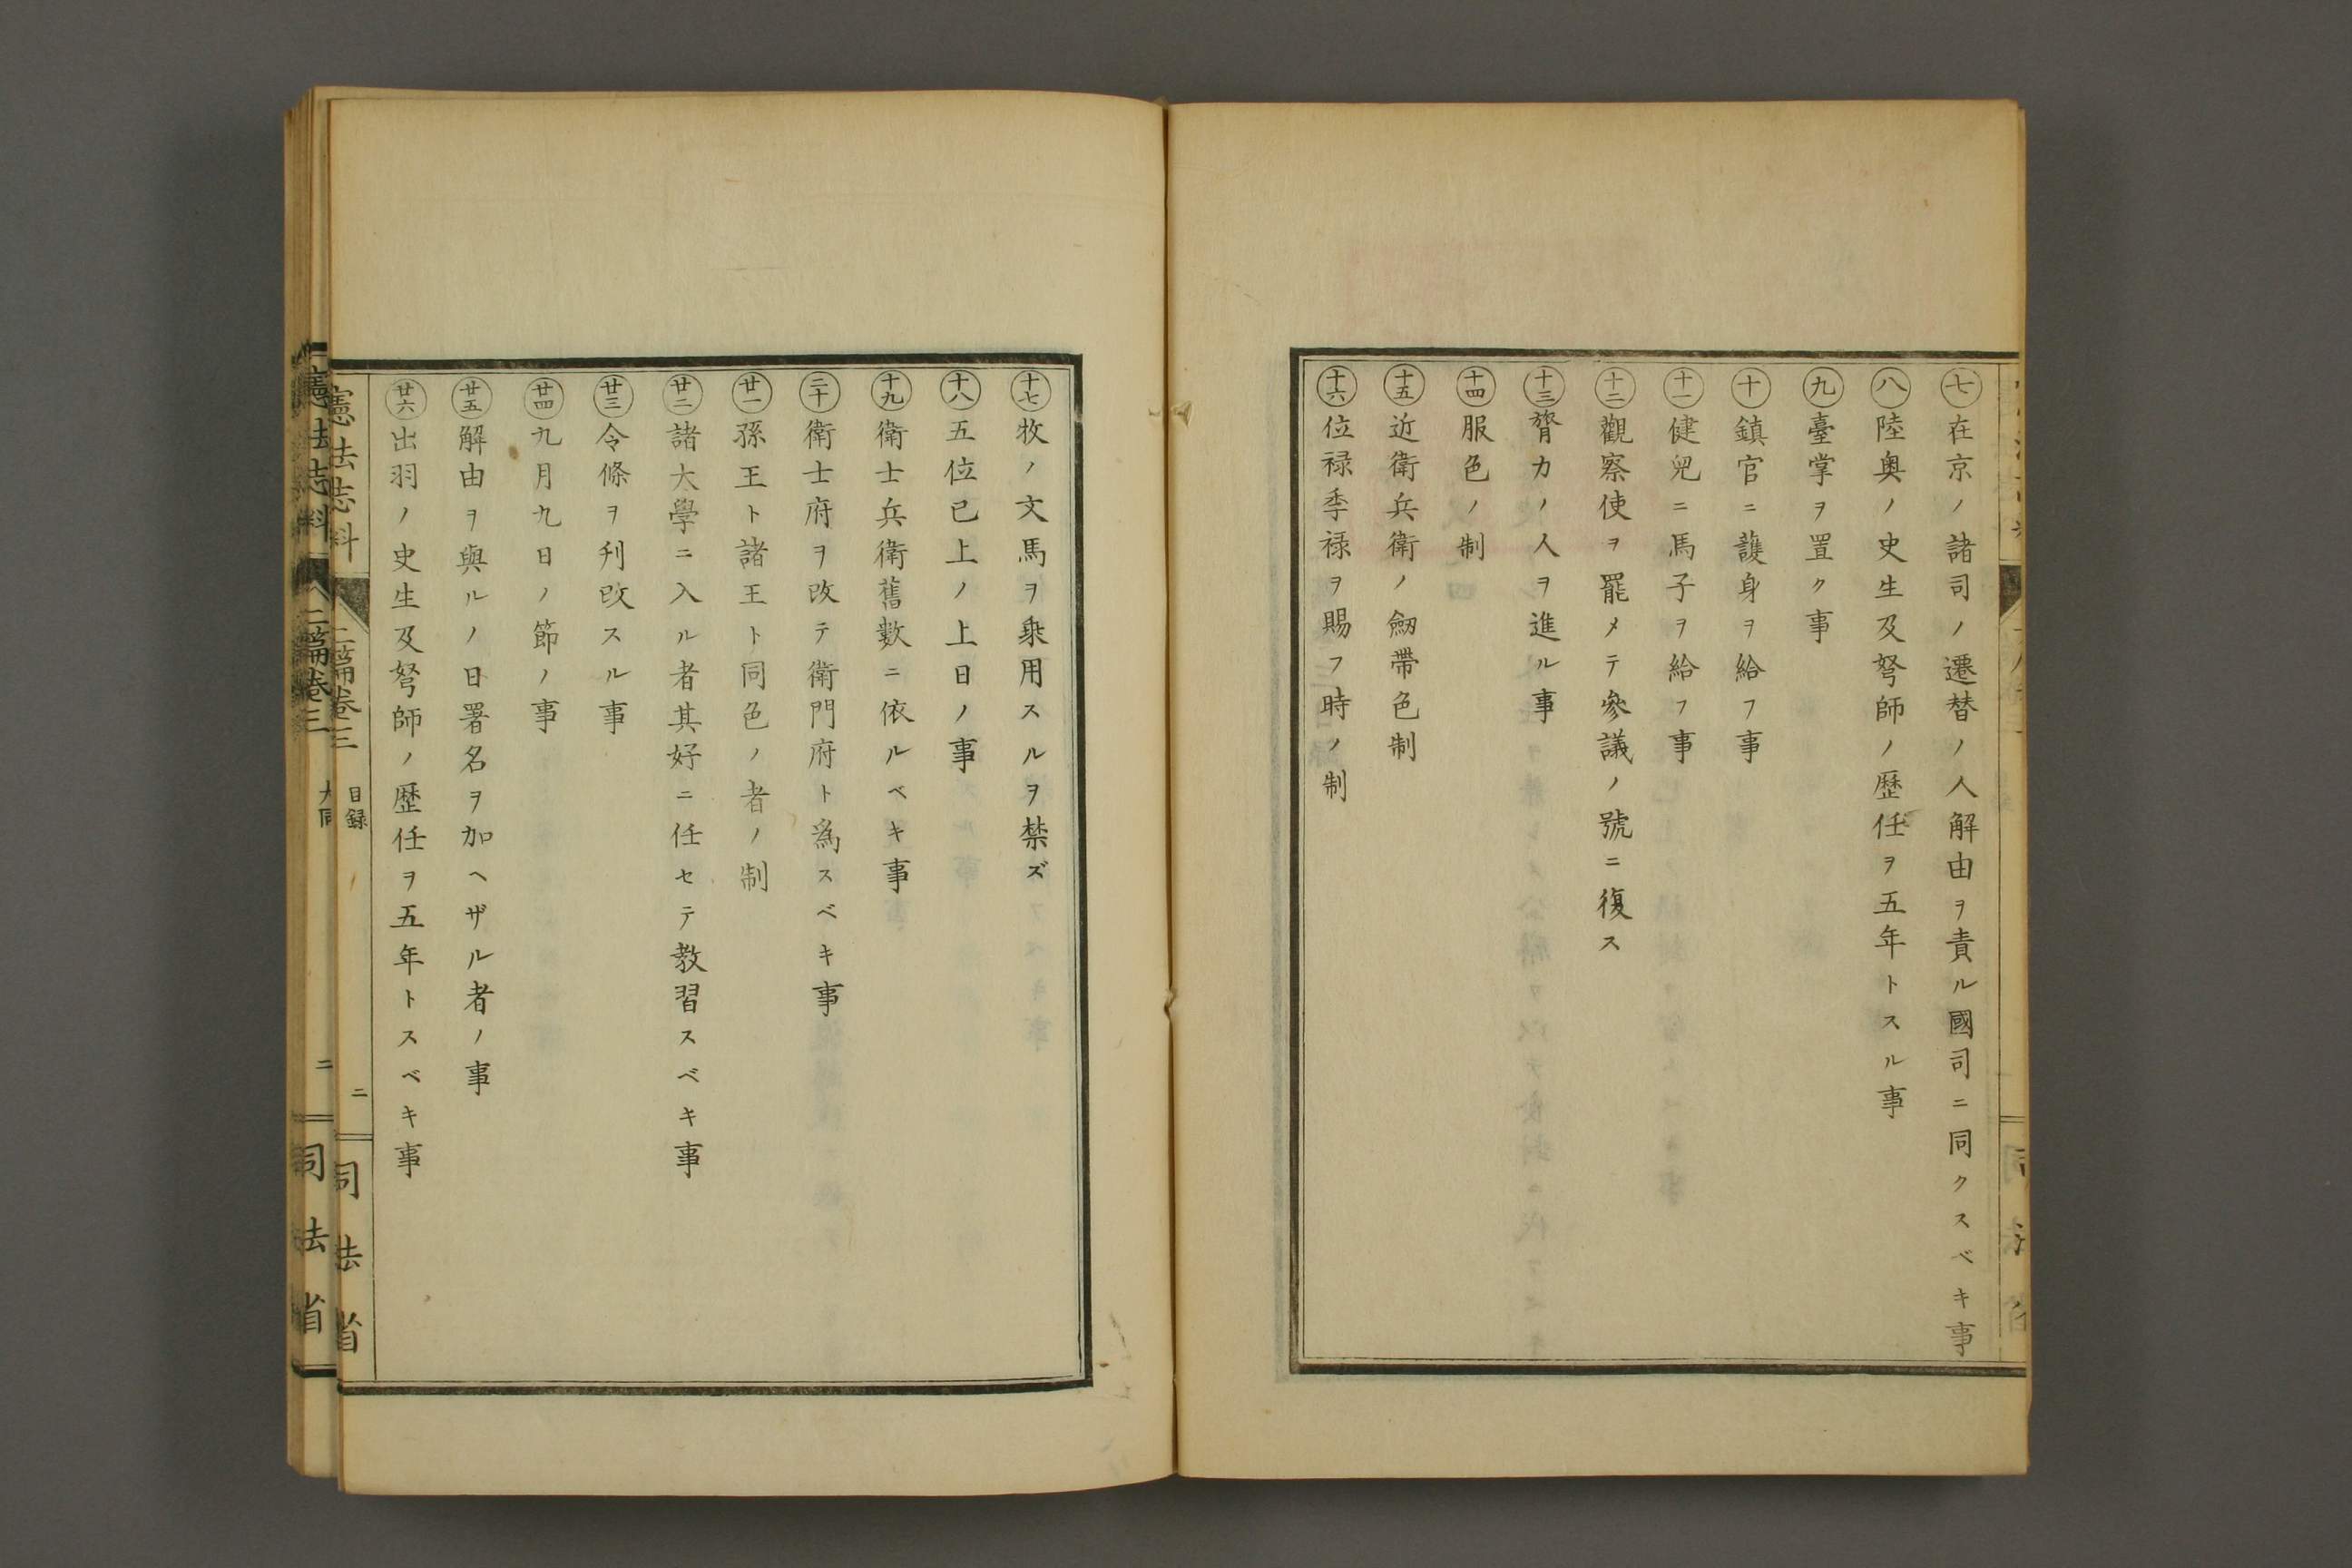 ㊆在京ノ諸司ノ遷替ノ人解由ヲ責ル國司ニ同クスベキ事
㊇陸奥ノ史生及弩師ノ歷任ヲ五年トスル事
㊈臺掌ヲ置ク事
㊉鎮官ニ護身ヲ給フ事
十一健兒ニ馬子ヲ給フ事
十二觀察使ヲ罷メテ參議ノ號ニ復ス
十三膂力ノ人ヲ進ル事
十四服色ノ制
十五近衛兵衛ノ劔帶色制
十六位禄季禄ヲ賜フ時ノ制
十七牧ノ文馬ヲ乗用スルヲ禁ズ
十八五位已上ノ上日ノ事
十九衛士兵衛舊數ニ依ルベキ事
二十衛士府ヲ改テ衛門府ト爲スベキ事
廿一孫王ト諸王ト同色ノ者ノ制
廿二諸大學ニ入ル者其好ニ任セテ教習スベキ事
廿三令條ヲ刋改スル事
廿四九月九日ノ節ノ事
廿五解由ヲ與ルノ日署名ヲ加ヘザル者ノ事
廿六出羽ノ史生及弩師ノ歷任ヲ五年トスベキ事
憲法志料 二篇卷三 目録 二 司法省
憲法志料 二篇卷三 大同 二 司法省